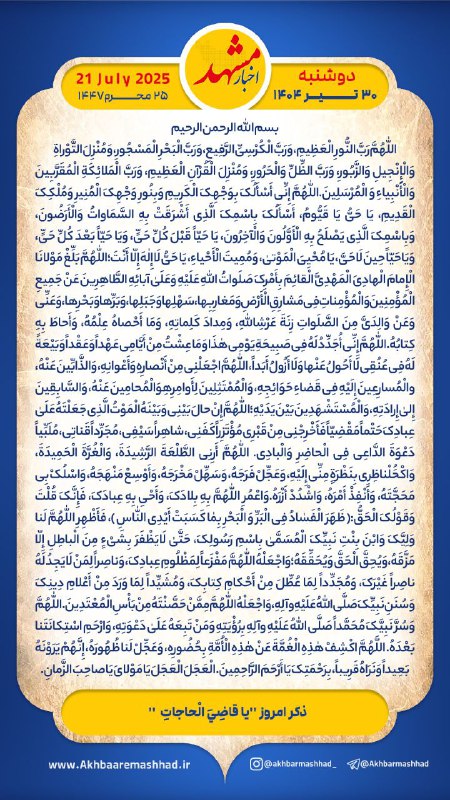 اخبار مشهد
دوشنبه
۳۰ تیر ۱۴۰۴
21 July 2025
۲۵ محرم ۱۴۴۷
بسم الله الرحمن الرحیم
اللّٰهُمَّ رَبَّ النُّورِ الْعَظِیمِ، وَرَبَّ الْکُرْسِیِّ الرَّفِیعِ، وَرَبَّ الْبَحْرِ الْمَسْجُورِ، وَمُنْزِلَ التَّوْراةِ
وَالْإِنْجِیلِ وَالزَّبُورِ، وَرَبَّ الظِّلِّ وَالْحَرُورِ، وَمُنْزِلَ الْقُرْآنِ الْعَظِیمِ، وَرَبَّ الْمَلائِکَةِ الْمُقَرَّبِینَ
وَالْأَنْبِیاءِ وَالْمُرْسَلِینَ. اللّٰهُمَّ إِنِّی أَسْأَلُکَ بِوَجْهِکَ الْکَرِیمِ وَبِنُورِ وَجْهِکَ الْمُنِیرِ وَمُلْکِکَ
الْقَدِیمِ، یَا حَیُّ یَا قَیُّومُ، أَسْأَلُکَ بِاسْمِکَ الَّذِی أَشْرَقَتْ بِهِ السَّمَاوَاتُ وَالْأَرَضُونَ،
وَبِاسْمِکَ الَّذِی یَصْلَحُ بِهِ الْأَوَّلُونَ وَالْآخِرُونَ، یَا حَیّاً قَبْلَ کُلِّ حَیٍّ، وَیَا حَیّاً بَعْدَ کُلِّ حَیٍّ،
وَیَا حَیّاً حِینَ لَا حَیَّ، یَا مُحْیِیَ الْمَوْتیٰ، وَمُمِیتَ الْأَحْیاءِ، یَا حَیُّ لَا إِلٰهَ إِلّا أَنْتَ؛ اللّٰهُمَّ بَلِّغْ مَوْلانَا
الْإِمامَ الْهادِیَ الْمَهْدِیَّ الْقائِمَ بِأَمْرِکَ صَلَواتُ اللّٰهِ عَلَیْهِ وَعَلَیٰ آبائِهِ الطَّاهِرِینَ عَنْ جَمِیعِ
الْمُؤْمِنِینَ وَالْمُؤْمِناتِ فِی مَشارِقِ الْأَرْضِ وَمَغارِبِها، سَهْلِها وَجَبَلِها، وَبَرِّها وَبَحْرِها، وَعَنِّی
وَعَنْ وَالِدَیَّ مِنَ الصَّلَواتِ زِنَةَ عَرْشِ اللّٰهِ، وَمِدادَ کَلِماتِهِ، وَمَا أَحْصاهُ عِلْمُهُ، وَأَحاطَ بِهِ
کِتابُهُ. اللّٰهُمَّ إِنِّی أُجَدِّدُ لَهُ فِی صَبِیحَةِ یَوْمِی هٰذَا وَمَا عِشْتُ مِنْ أَیَّامِی عَهْداً وَعَقْداً وَبَیْعَةً
لَهُ فِی عُنُقِی لَا أَحُولُ عَنْها وَلَا أَزُولُ أَبَداً، اللّٰهُمَّ اجْعَلْنِی مِنْ أَنْصارِهِ وَأَعْوانِهِ، وَالذَّابِّینَ عَنْهُ،
وَالْمُسارِعِینَ إِلَیْهِ فِی قَضاءِ حَوَائِجِهِ، وَالْمُمْتَثِلِینَ لِأَوامِرِهِ وَالْمُحامِینَ عَنْهُ، وَالسَّابِقِینَ
إِلیٰ إِرادَتِهِ، وَالْمُسْتَشْهَدِینَ بَیْنَ یَدَیْهِ؛ اللّٰهُمَّ إِنْ حالَ بَیْنِی وَبَیْنَهُ الْمَوْتُ الَّذِی جَعَلْتَهُ عَلَیٰ
عِبادِکَ حَتْماً مَقْضِیّاً فَأَخْرِجْنِی مِنْ قَبْرِی مُؤْتَزِراً کَفَنِی، شاهِراً سَیْفِی، مُجَرِّداً قَناتِی، مُلَبِّیاً
دَعْوَةَ الدَّاعِی فِی الْحاضِرِ وَالْبادِی. اللّٰهُمَّ أَرِنِی الطَّلْعَةَ الرَّشِیدَةَ، وَالْغُرَّةَ الْحَمِیدَةَ،
وَاکْحُلْ ناظِرِی بِنَظْرَةٍ مِنِّی إِلَیْهِ، وَعَجِّلْ فَرَجَهُ، وَسَهِّلْ مَخْرَجَهُ، وَأَوْسِعْ مَنْهَجَهُ، وَاسْلُکْ بِی
مَحَجَّتَهُ، وَأَنْفِذْ أَمْرَهُ، وَاشْدُدْ أَزْرَهُ، وَاعْمُرِ اللّٰهُمَّ بِهِ بِلادَکَ، وَأَحْیِ بِهِ عِبادَکَ، فَإِنَّکَ قُلْتَ
وَقَوْلُکَ الْحَقُّ: (ظَهَرَ الْفَسادُ فِی الْبَرِّ وَالْبَحْرِ بِمَا کَسَبَتْ أَیْدِی النَّاسِ)، فَأَظْهِرِ اللّٰهُمَّ لَنا
وَلِیَّکَ وَابْنَ بِنْتِ نَبِیِّکَ الْمُسَمَّیٰ بِاسْمِ رَسُولِکَ، حَتَّیٰ لَا یَظْفَرَ بِشَیْءٍ مِنَ الْباطِلِ إِلّا
مَزَّقَهُ، وَیُحِقَّ الْحَقَّ وَیُحَقِّقَهُ؛ وَاجْعَلْهُ اللّٰهُمَّ مَفْزَعاً لِمَظْلُومِ عِبادِکَ، وَناصِراً لِمَنْ لَا یَجِدُ لَهُ
ناصِراً غَیْرَکَ، وَمُجَدِّداً لِمَا عُطِّلَ مِنْ أَحْکامِ کِتابِکَ، وَمُشَیِّداً لِمَا وَرَدَ مِنْ أَعْلامِ دِینِکَ
وَسُنَنِ نَبِیِّکَ صَلَّی اللّٰهُ عَلَیْهِ وَآلِهِ، وَاجْعَلْهُ اللّٰهُمَّ مِمَّنْ حَصَّنْتَهُ مِنْ بَأْسِ الْمُعْتَدِینَ. اللّٰهُمَّ
وَسُرَّ نَبِیَّکَ مُحَمَّداً صَلَّی اللّٰهُ عَلَیْهِ وَآلِهِ بِرُؤْیَتِهِ وَمَنْ تَبِعَهُ عَلَیٰ دَعْوَتِهِ، وَارْحَمِ اسْتِکانَتَنا
بَعْدَهُ. اللّٰهُمَّ اکْشِفْ هٰذِهِ الْغُمَّةَ عَنْ هٰذِهِ الْأُمَّةِ بِحُضُورِهِ، وَعَجِّلْ لَنا ظُهُورَهُ، إِنَّهُمْ یَرَوْنَهُ
بَعِیداً وَنَرَاهُ قَرِیباً، بِرَحْمَتِکَ یَا أَرْحَمَ الرَّاحِمِینَ. الْعَجَلَ الْعَجَلَ یَا مَوْلایَ یَا صاحِبَ الزَّمانِ.
ذکر امروز "یا قاضِیَ الْحاجات"
www.Akhbaaremashhad.ir
@akhbarmashhad_
@Akhbarmashhad